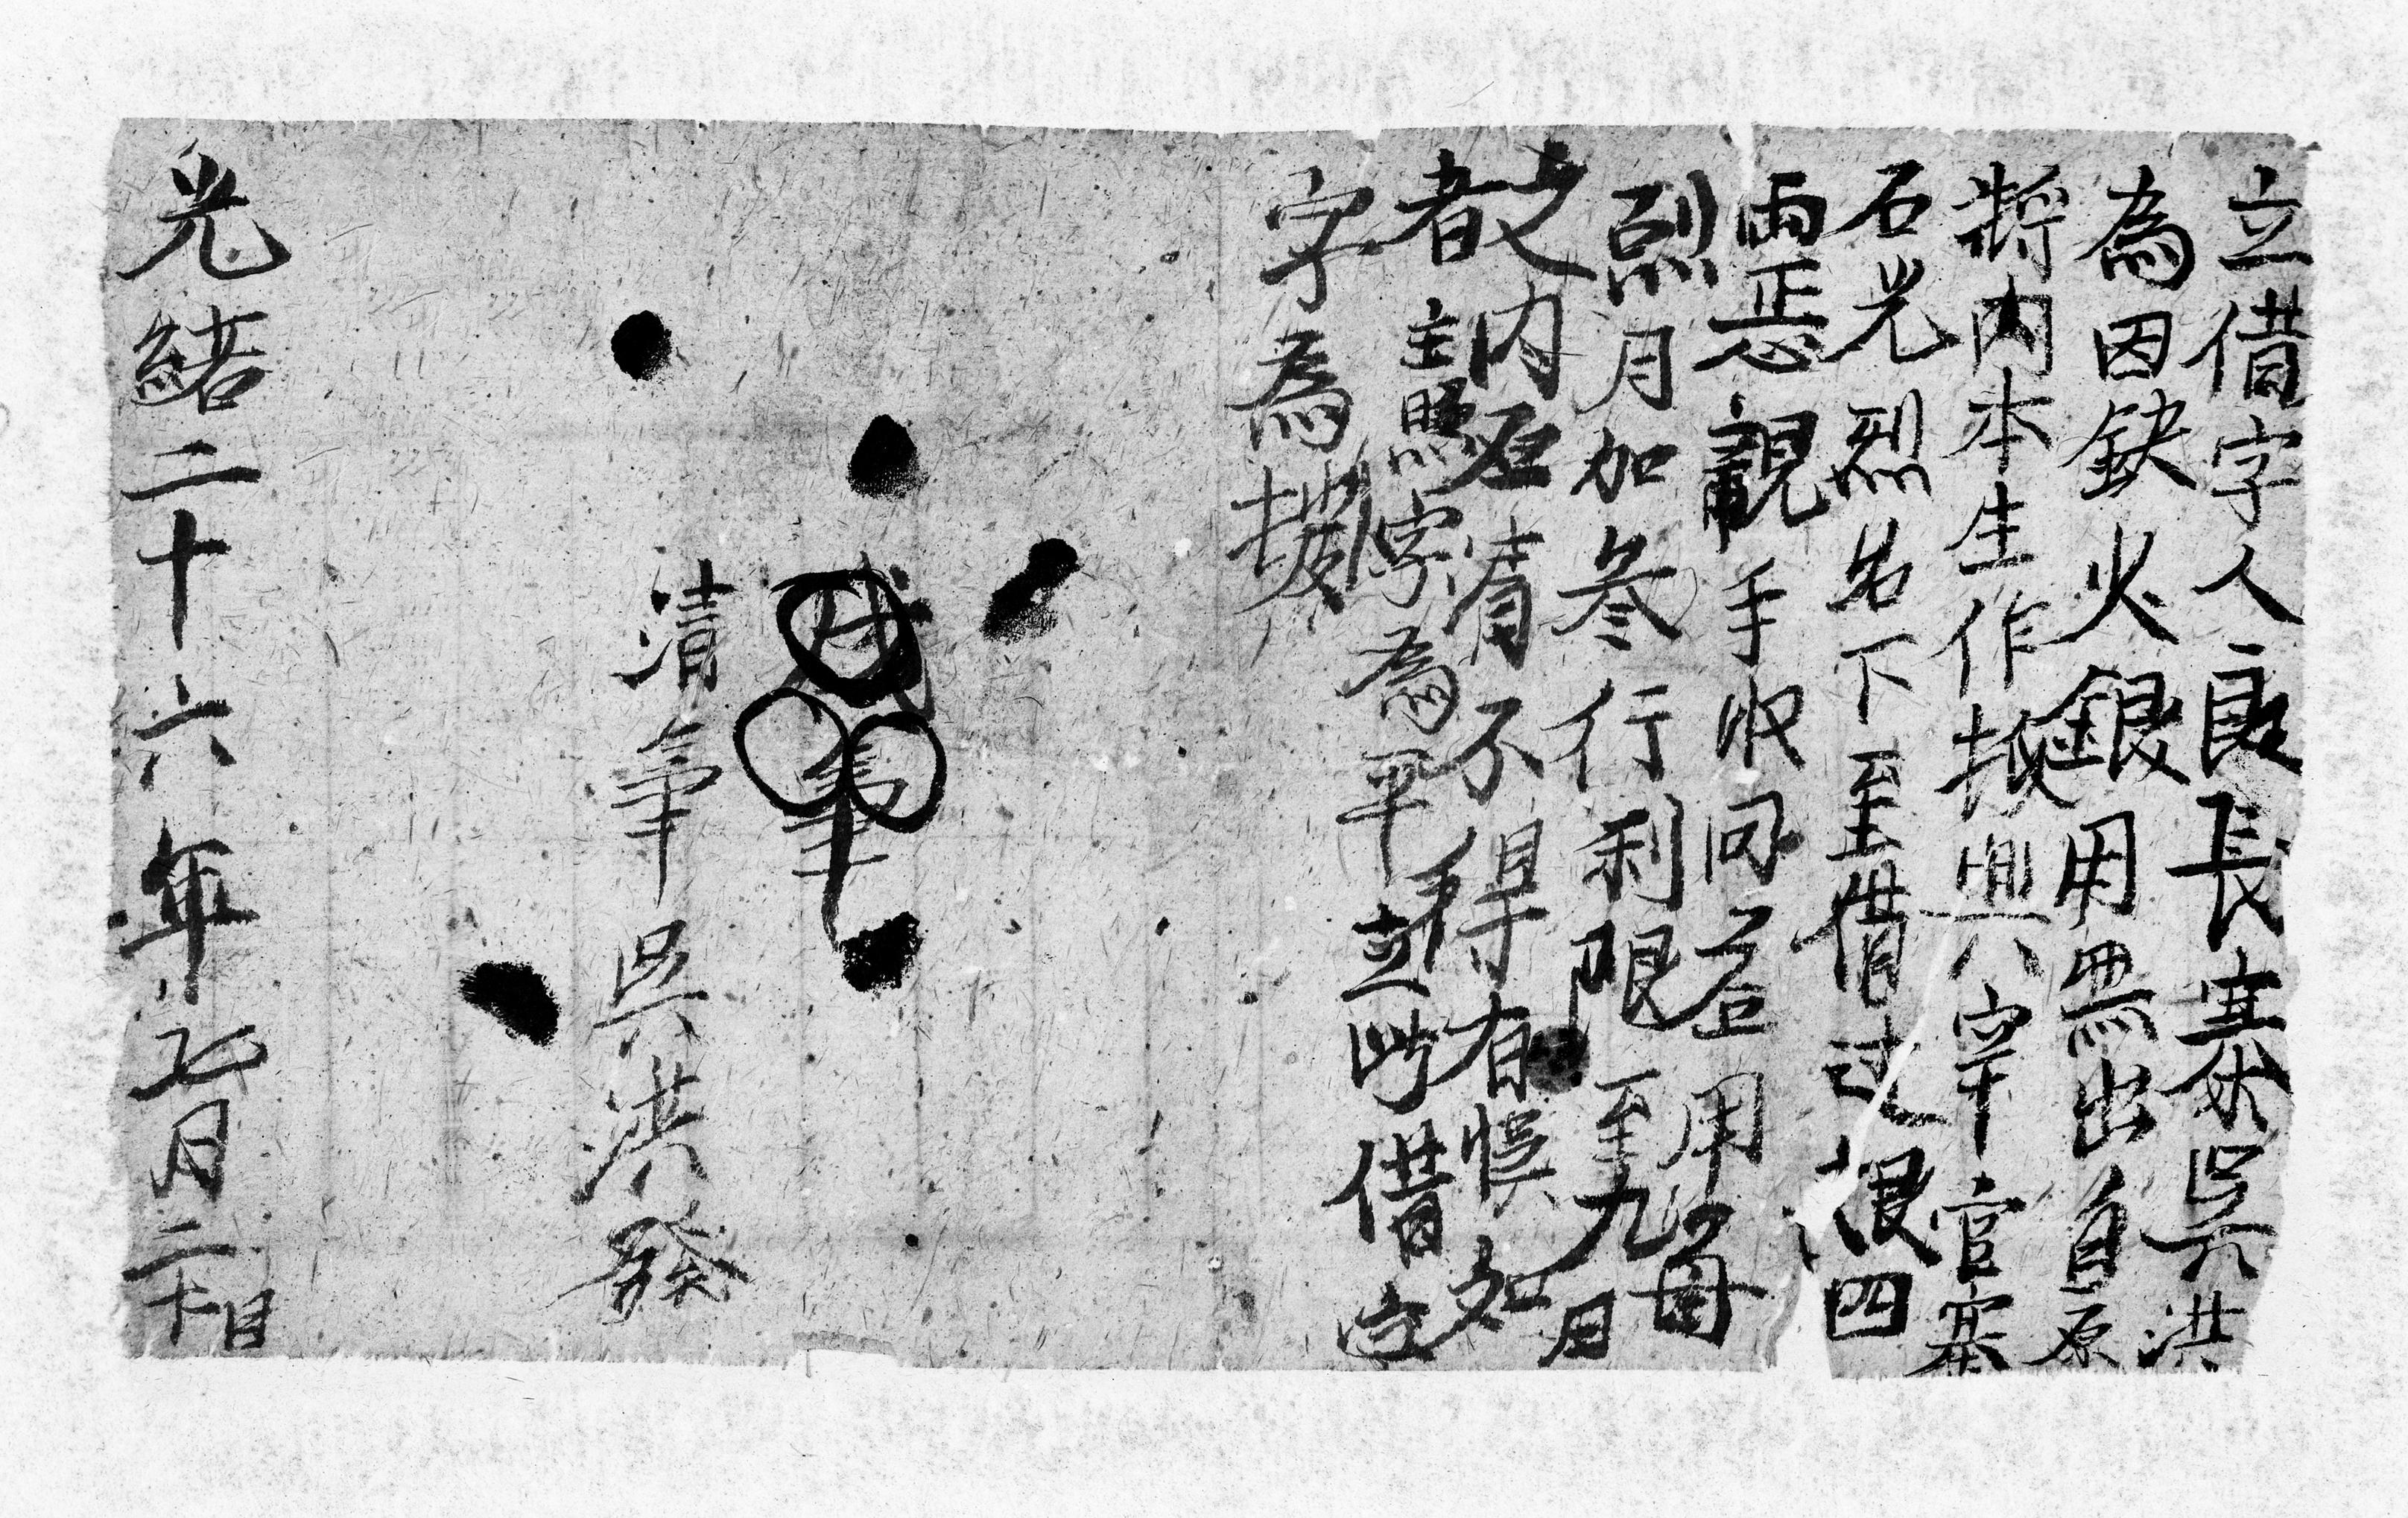 立借字人良長寨吳洪
為因缺火銀用無出自原
將內本生作抵與宰官寨
石光烈名下至借过銀四
両恴親手収回应用母
烈月加叁行利限至九月
之内还清不得有悮如
者主照字為平並此借字
字為援
清筆吳洪發
光緒二十六年七月二十日